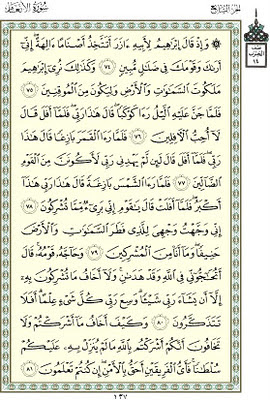 سُورَةُ الأَنْعَامِ الجزء السابع
۞ وَإِذْ قَالَ إِبْرَاهِيمُ لِأَبِيهِ ءَازَرَ أَتَتَّخِذُ أَصْنَامًا ءَالِهَةً إِنِّي
أَرَىٰكَ وَقَوْمَكَ فِي ضَلَٰلٍ مُّبِينٍ ٧٤ وَكَذَٰلِكَ نُرِي إِبْرَاهِيمَ
مَلَكُوتَ السَّمَٰوَٰتِ وَالْأَرْضِ وَلِيَكُونَ مِنَ الْمُوقِنِينَ ٧٥
فَلَمَّا جَنَّ عَلَيْهِ الَّيْلُ رَءَا كَوْكَبًا قَالَ هَٰذَا رَبِّي فَلَمَّا أَفَلَ قَالَ
لَا أُحِبُّ الْآفِلِينَ ٧٦ فَلَمَّا رَءَا الْقَمَرَ بَازِغًا قَالَ هَٰذَا
رَبِّي فَلَمَّا أَفَلَ قَالَ لَئِن لَّمْ يَهْدِنِي رَبِّي لَأَكُونَنَّ مِنَ الْقَوْمِ
الضَّالِّينَ ٧٧ فَلَمَّا رَءَا الشَّمْسَ بَازِغَةً قَالَ هَٰذَا رَبِّي هَٰذَا
أَكْبَرُ فَلَمَّا أَفَلَتْ قَالَ يَٰقَوْمِ إِنِّي بَرِيءٌ مِّمَّا تُشْرِكُونَ ٧٨
إِنِّي وَجَّهْتُ وَجْهِيَ لِلَّذِي فَطَرَ السَّمَٰوَٰتِ وَالْأَرْضَ
حَنِيفًا وَمَا أَنَا مِنَ الْمُشْرِكِينَ ٧٩ وَحَاجَّهُ قَوْمُهُ قَالَ
أَتُحَٰجُّونِّي فِي اللَّهِ وَقَدْ هَدَىٰنِ وَلَا أَخَافُ مَا تُشْرِكُونَ بِهِ
إِلَّا أَن يَشَاءَ رَبِّي شَيْئًا وَسِعَ رَبِّي كُلَّ شَيْءٍ عِلْمًا أَفَلَا
تَتَذَكَّرُونَ ٨٠ وَكَيْفَ أَخَافُ مَا أَشْرَكْتُمْ وَلَا
تَخَافُونَ أَنَّكُمْ أَشْرَكْتُم بِاللَّهِ مَا لَمْ يُنَزِّلْ بِهِ عَلَيْكُمْ
سُلْطَٰنًا فَأَيُّ الْفَرِيقَيْنِ أَحَقُّ بِالْأَمْنِ إِن كُنتُمْ تَعْلَمُونَ ٨١
١٣٧
نصف
الحزب
١٤